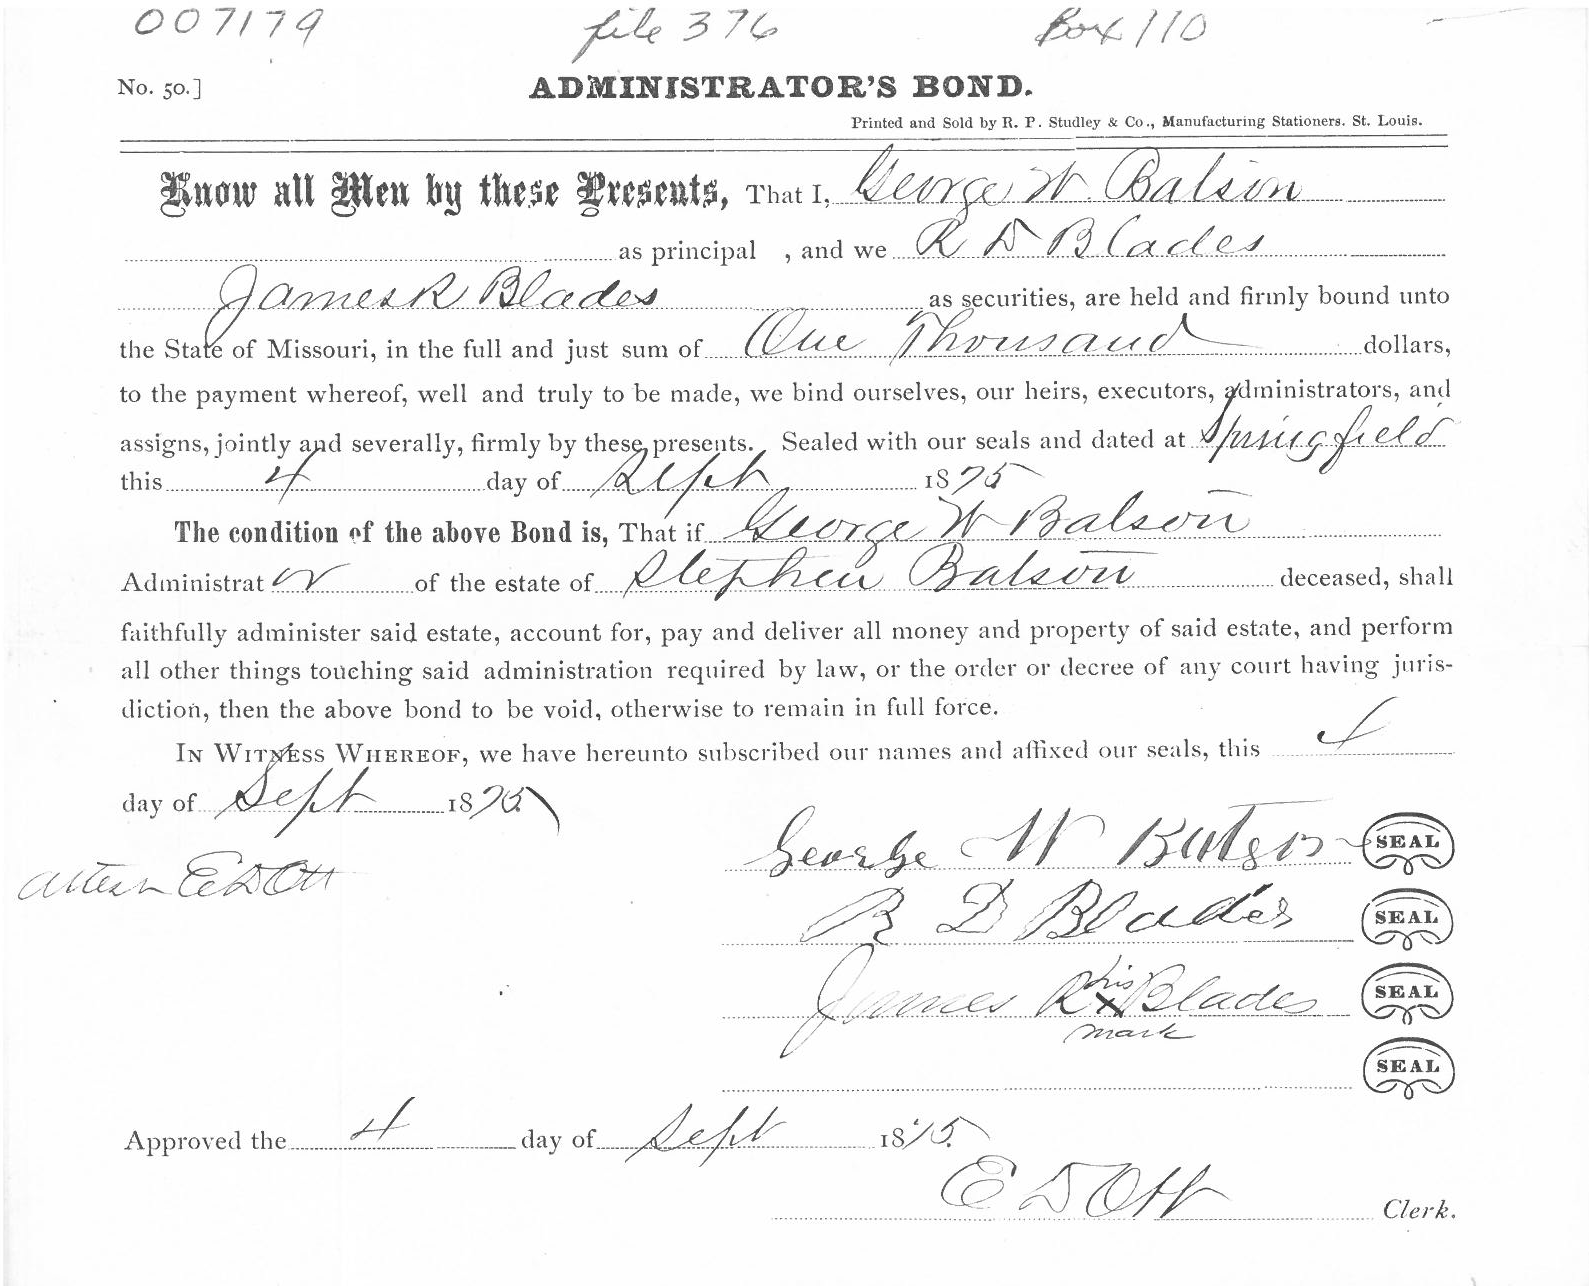 007179 file 376 Box 110
No. 50.] ADMINISTRATOR'S BOND.
Printed and Sold by R. P. Studley & Co., Manufacturing Stationers. St. Louis.
Know all Men by these Presents, That I, George W. Batson
as principal , and we R D Blades
James R Blades as securities, are held and firmly bound unto
the State of Missouri, in the full and just sum of One Thousand dollars,
to the payment whereof, well and truly to be made, we bind ourselves, our heirs, executors, administrators, and
assigns, jointly and severally, firmly by these presents. Sealed with our seals and dated at Springfield
this 4 day of Sept 1875
The condition of the above Bond is, That if George W Batson
Administrator of the estate of Stephen Batson deceased, shall
faithfully administer said estate, account for, pay and deliver all money and property of said estate, and perform
all other things touching said administration required by law, or the order or decree of any court having juris-
diction, then the above bond to be void, otherwise to remain in full force.
IN WITNESS WHEREOF, we have hereunto subscribed our names and affixed our seals, this 4
day of Sept 1875
George W Batson SEAL
attest E D Ott
R D Blades SEAL
James R his x mark Blades SEAL
SEAL
Approved the 4 day of Sept 1875
E D Ott Clerk.